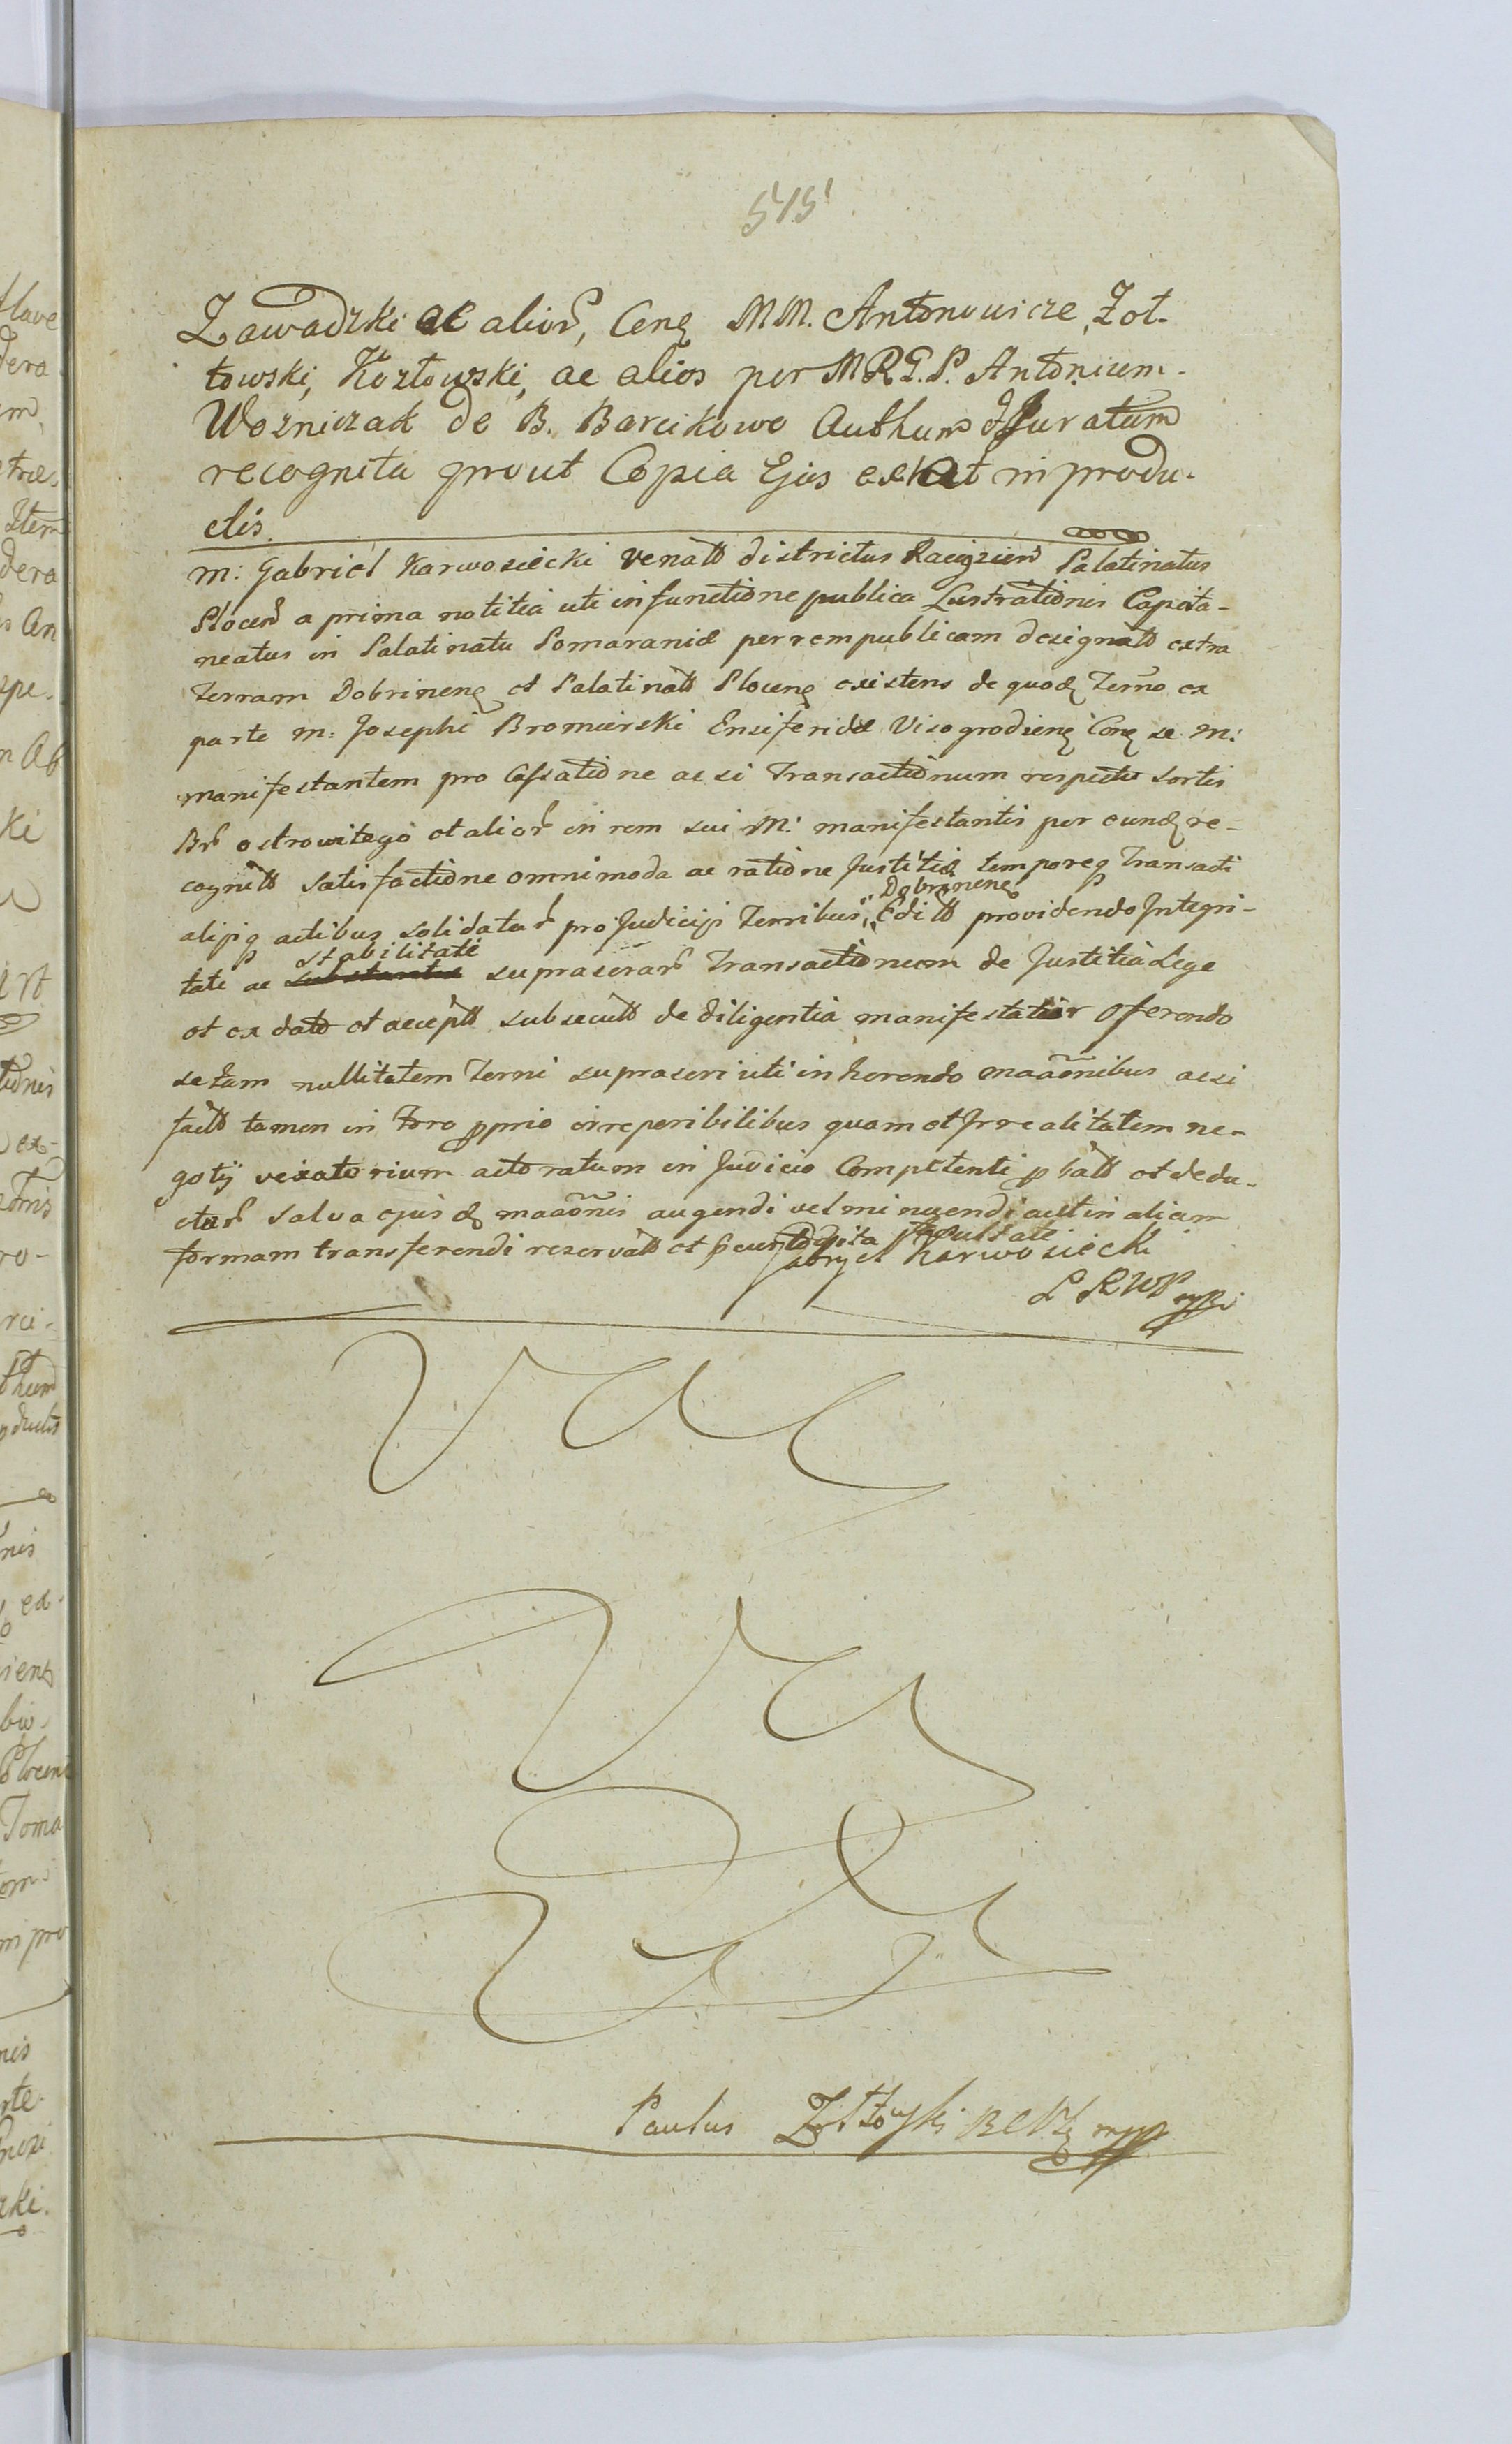 515
Zawadzki ac alior, Cenę MM. Antonowicze, Zoł-
towski, Kozłowski, ac alios per MRGP. Antonium
Wozniczak de B. Barcikowo Authum Juratum
recognita prout Copia Ejus extat in produ-
ctis.
M: Gabriel Karwosiecki Venatt districtus Raciązien Palatinatus
Plocen a prima notitia uti in functione publica Lustrationis Capita-
neatus in Palatinatu Pomaraniæ per rempublicam designatt extra
Terram Dobrinenę et Palatinatt Plocenę existens de quodę Termo ex
parte M: Josephi Bromierski Ensiferidæ Visogrodienę Conę se M:
manifestantem pro Cassatione ac si Transactionum respectu sortis
Br ostrowitego et alior in rem sui M: manifestantis per eundę re-
cognitt satisfactione omnimoda ac ratione Justitiæ temporeq Transacti
alijsq actibus solidatar pro Judicijs Terribus Dobrinenę Editt providendo Integri-
tati ac stabilitati suprascrar Transactionem de Justitia Lege
et ex dato et acceptt subsecutt de diligentia manifestatur Offerendo
se tam nullitatem Termi suprascri uti inherendo maaõnibus ac si
factt tamen in Foro pprio irreperibilibus quam et Irrealitatem ne-
gotij vexatorium actoratum in Judicio Competenti pbatt et dedu-
ctur salva ejusdę maaõnis augendi vel minuendi aut in aliam
formam transferendi reservatt et facultate
Gabryel Karwosiecki
Ł R WP mpp
Paulus Zołtowski mpp